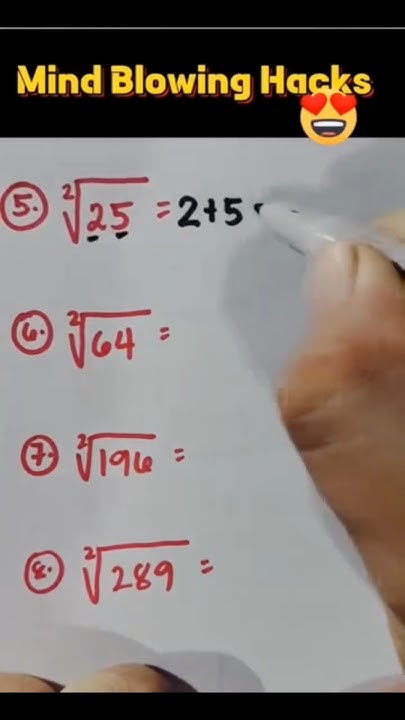 Mind Blowing Hacks 😍
5. ²√25 = 2+5
6. ²√64 =
7. ²√196 =
8. ²√289 =